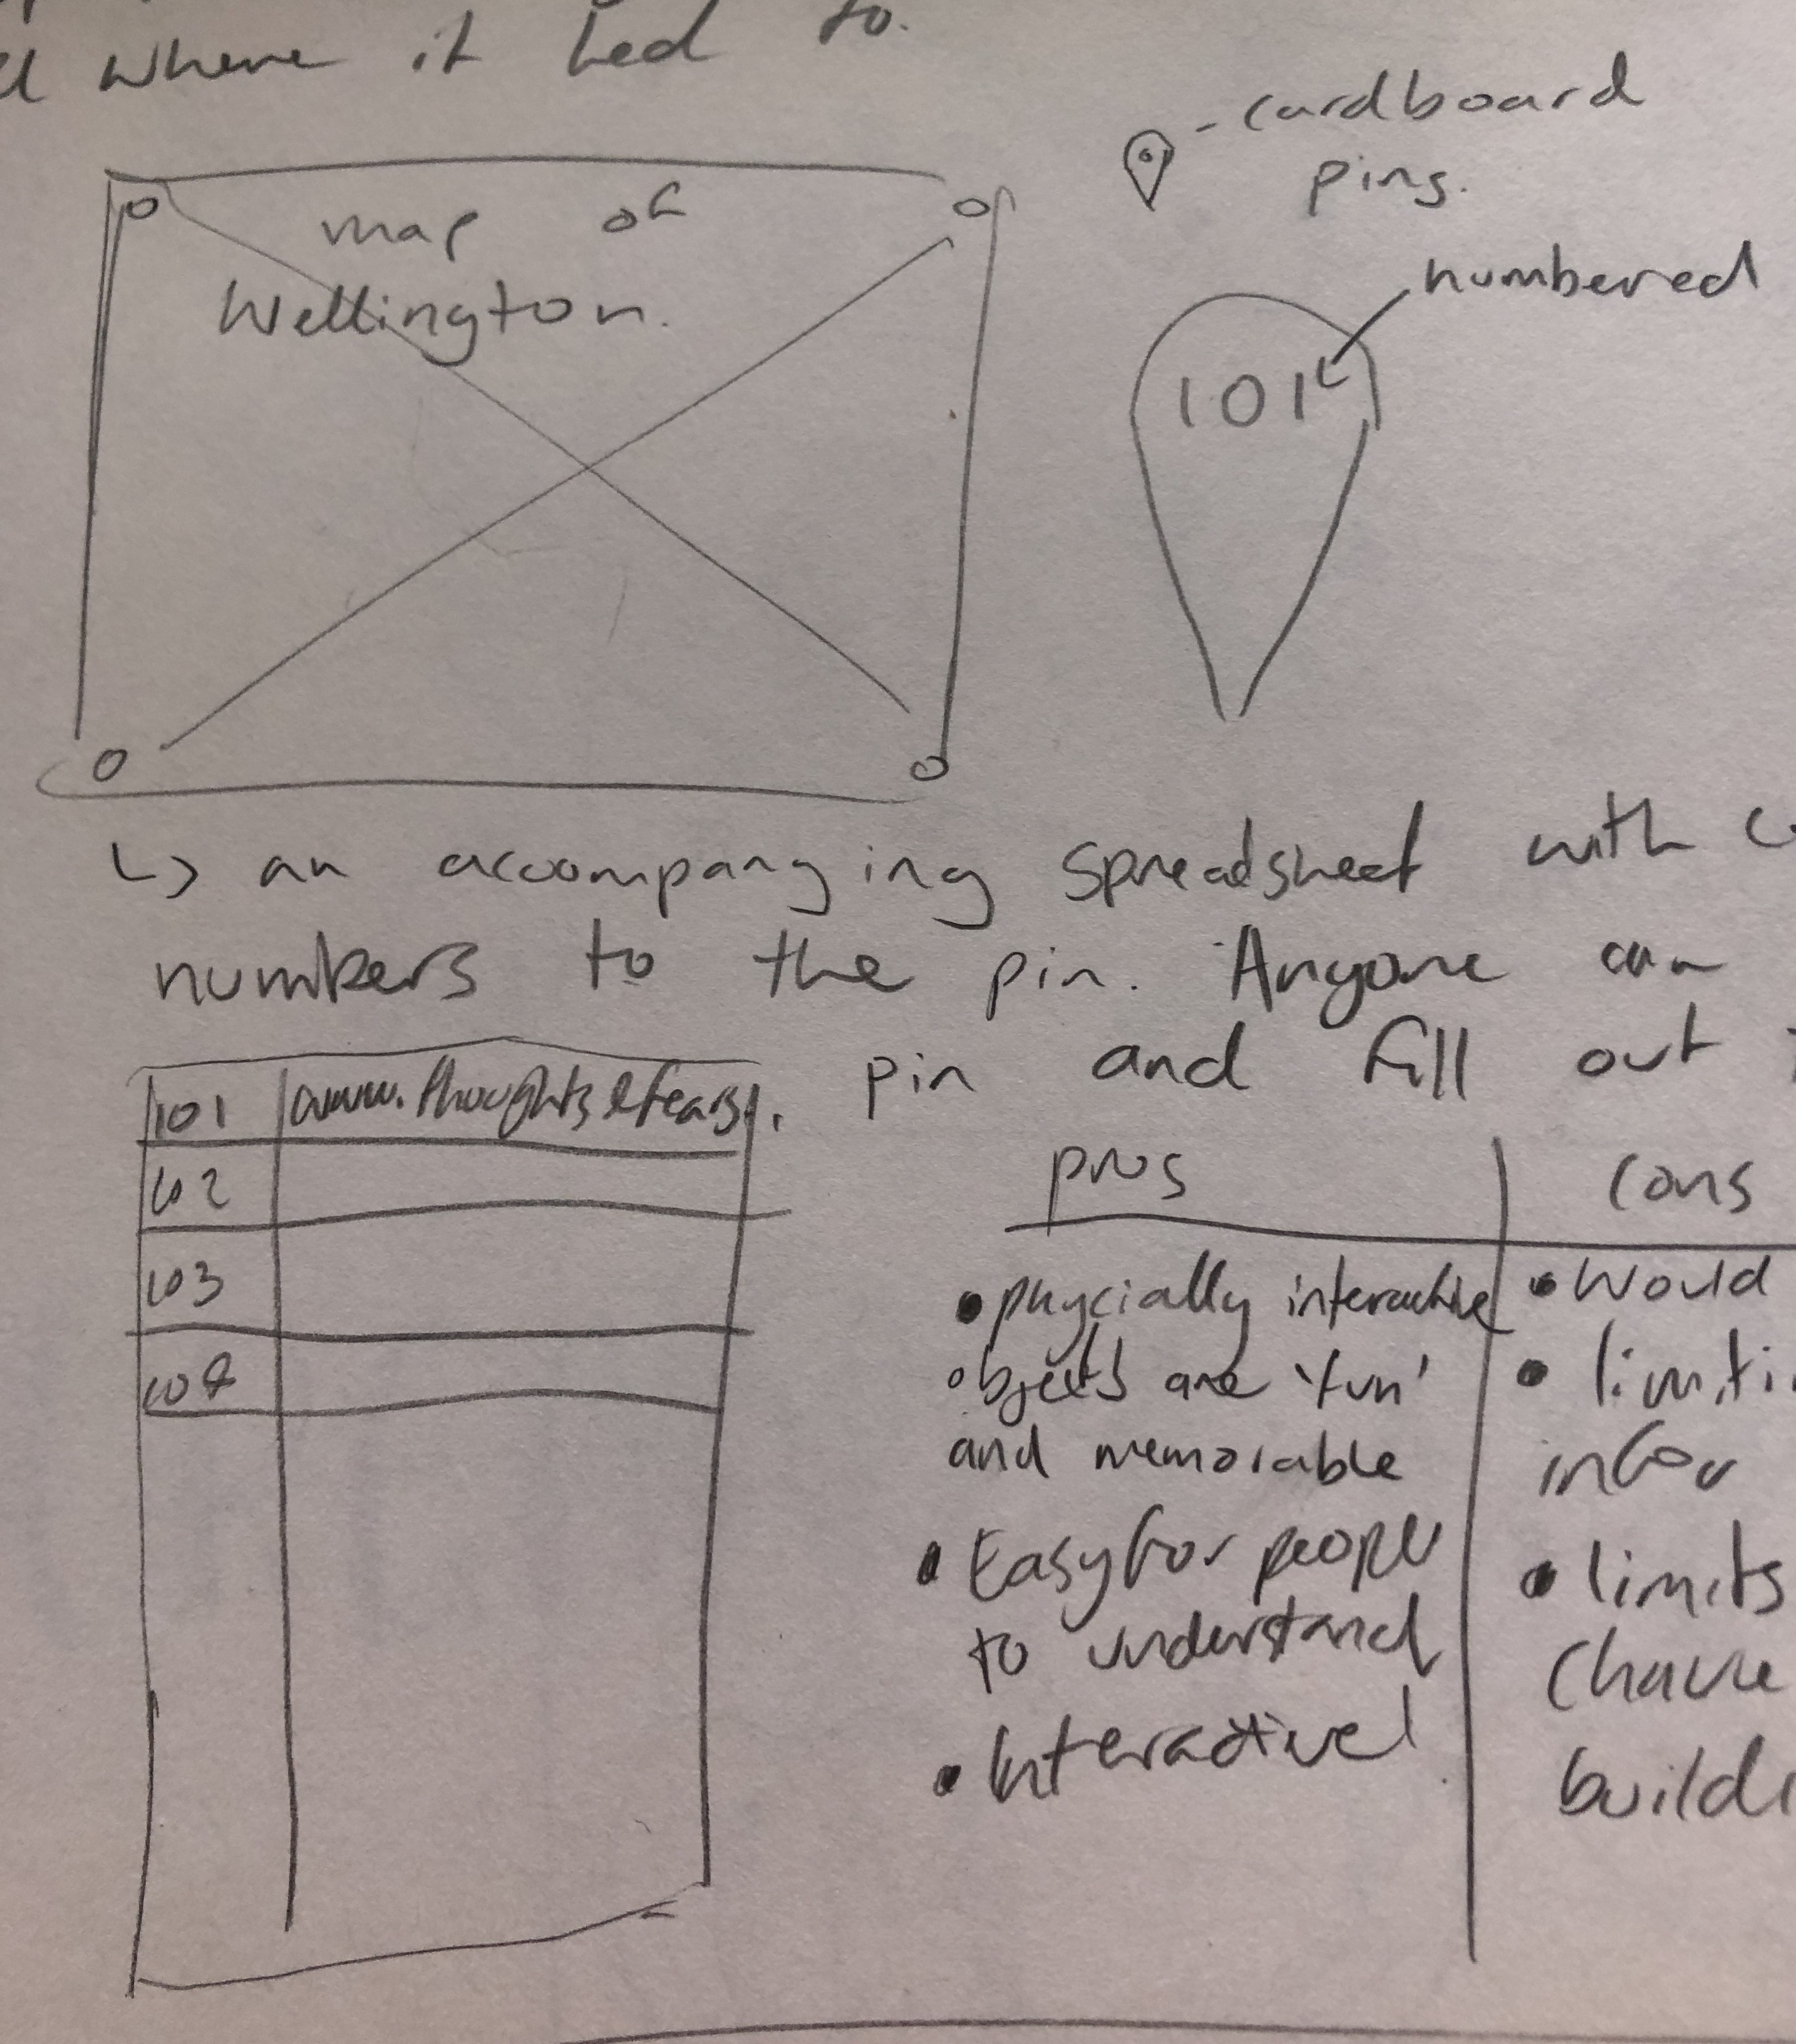 where it led to.
map of
Wellington.
- cardboard
pins.
numbered
101
↳ an accompanying spreadsheet with
numbers to the pin. Anyone can
pin and fill out
101 www.thoughts&fears
102
103
104
pros cons
• phycially interactive
objects are 'fun'
and memorable
• Easy for people
to understand
• Interactive!
• Would
• limiti
infor
• limits
buildi